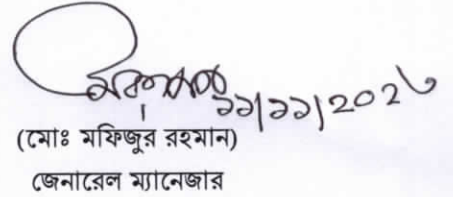 ১১/১১/২০২৬
(মোঃ মফিজুর রহমান)
জেনারেল ম্যানেজার